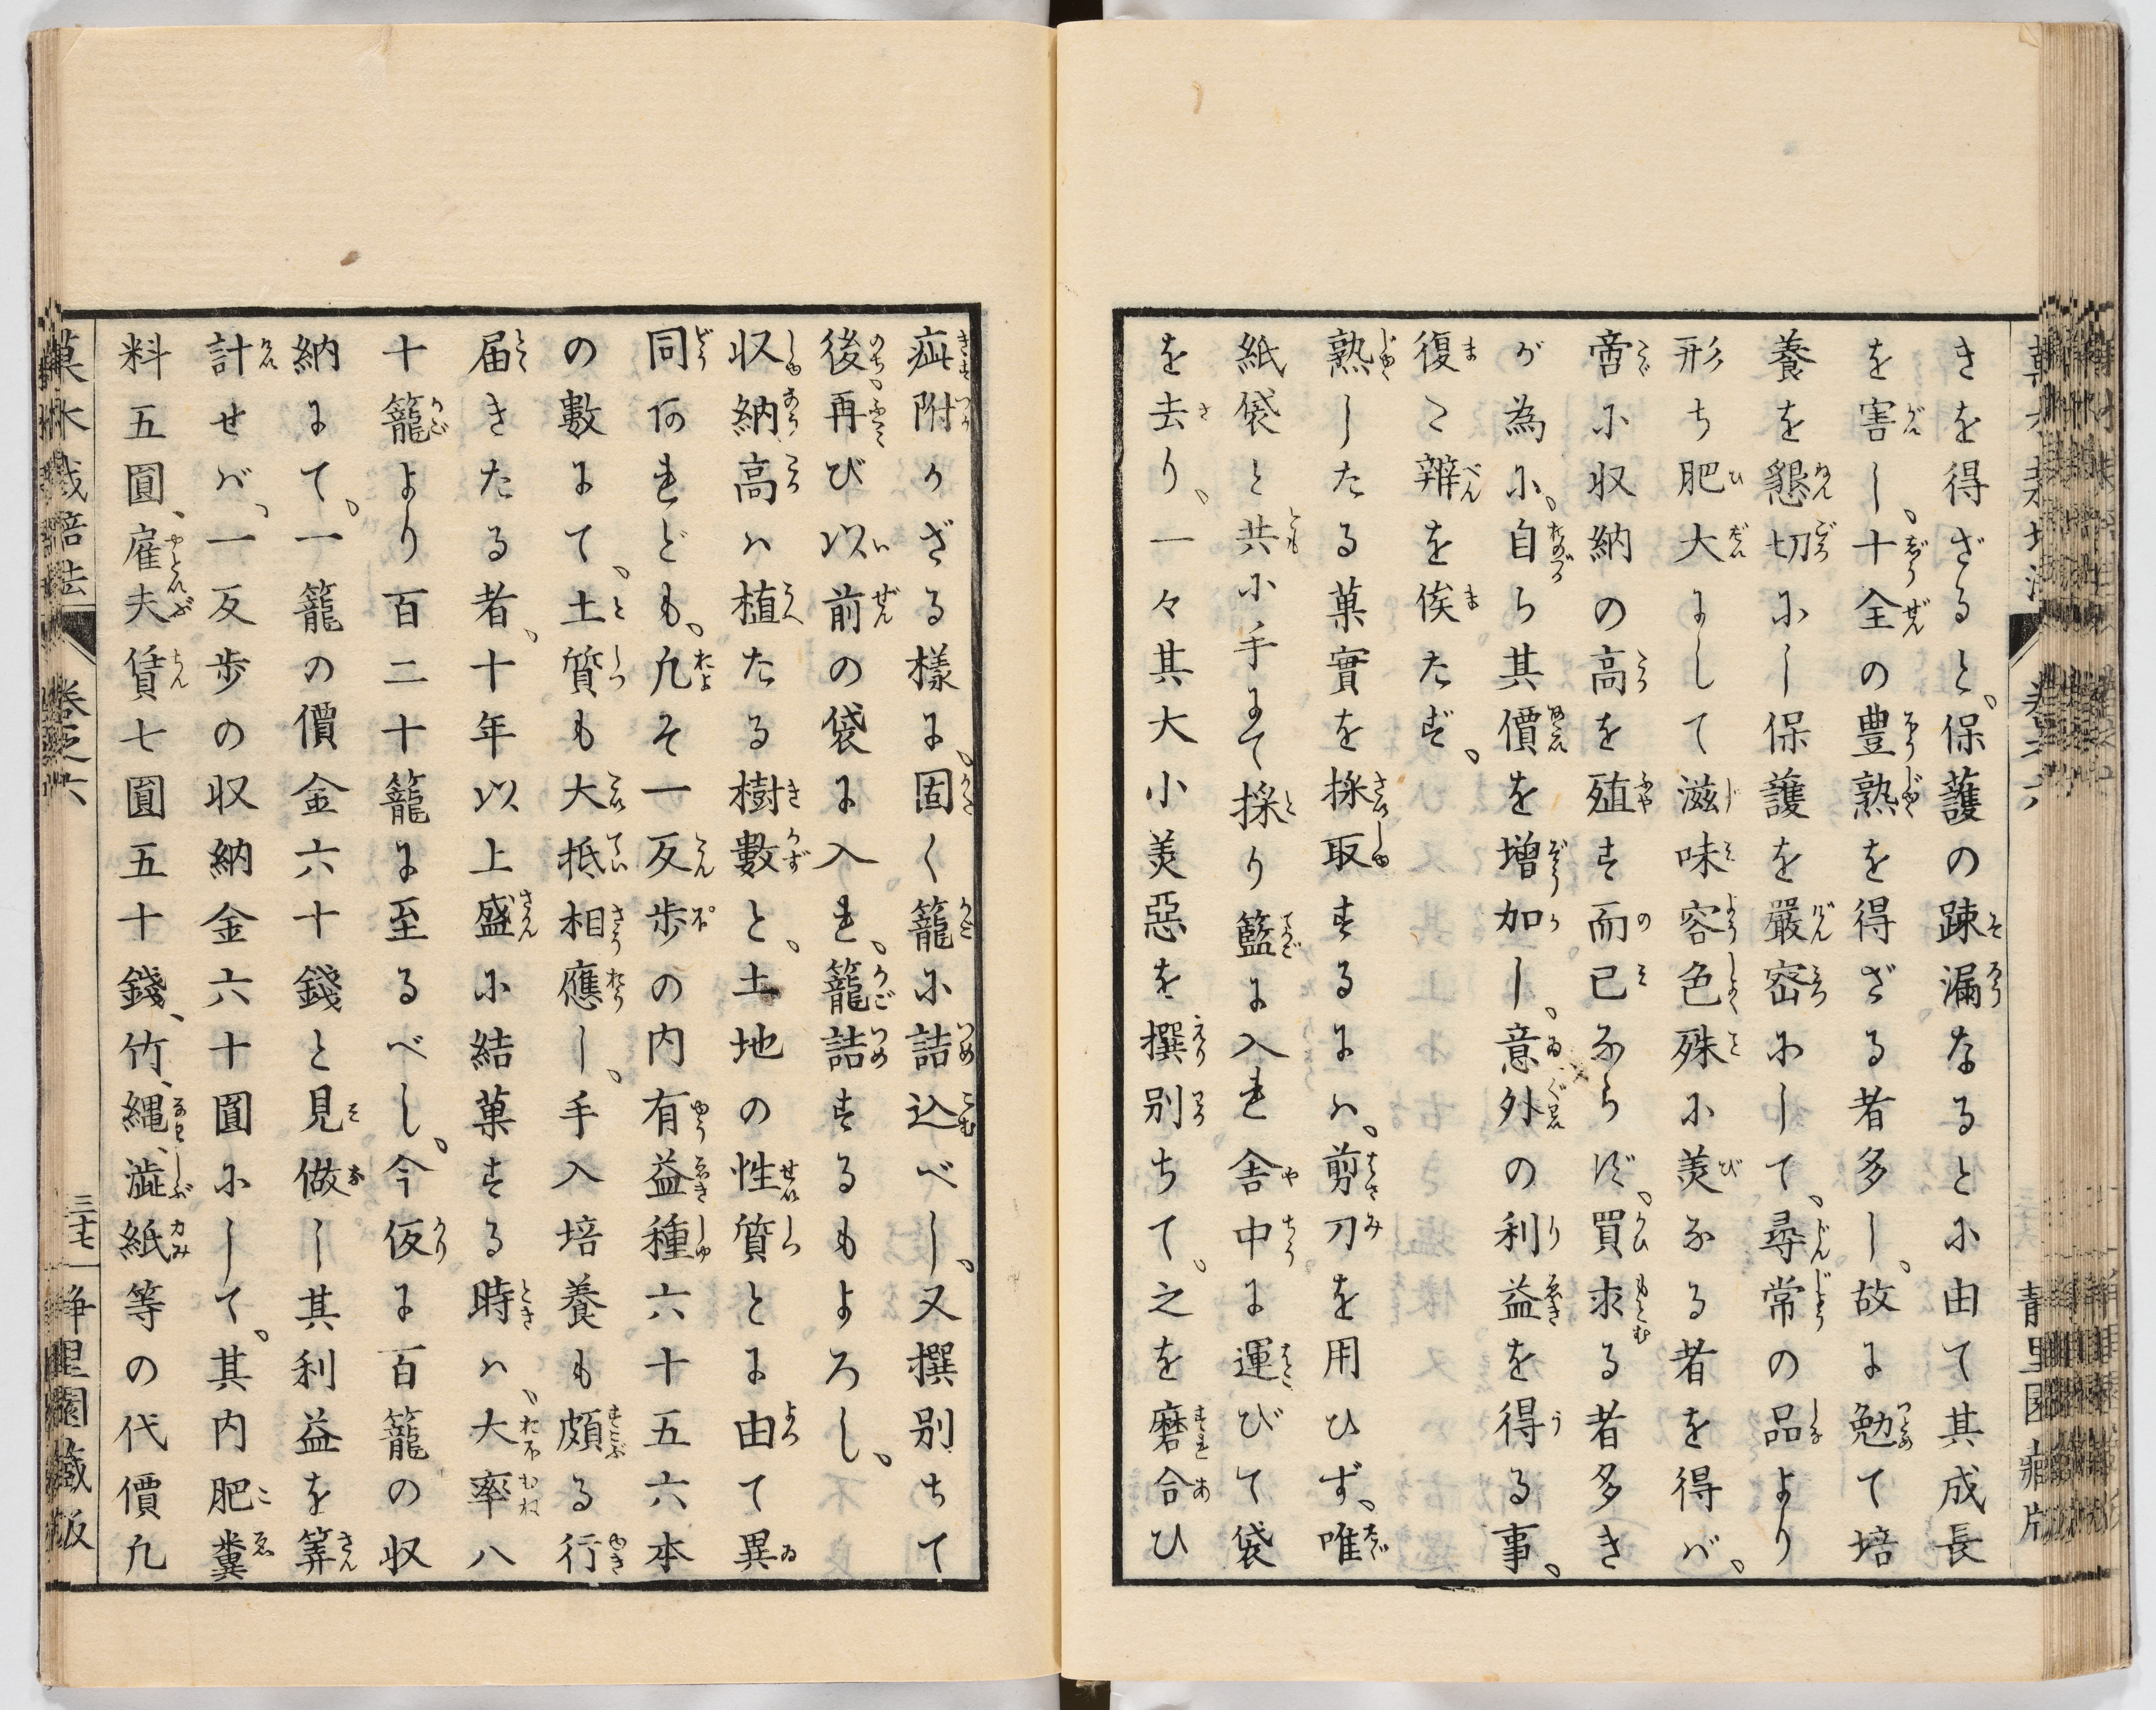 きを得ざると、保護の疎漏なるとに由て其成長
を害し、十全の豊熟を得ざる者多し、故に勉て培
養を懇切にし保護を嚴密にして、尋常の品より
形ち肥大にして滋味容色殊に美なる者を得バ、
啻に収納の高を殖す而已ならず、買求る者多き
が為に、自ら其價を増加し、意外の利益を得る事、
復た辨を俟たず、
熟したる菓實を採取するにハ、剪刀を用ひず、唯
紙袋と共に手にて採り籃に入れ舎中に運びて袋
を去り、一々其大小美惡を撰別ちて、之を磨合ひ
疵附かざる様に、固く籠に詰込べし、又撰別ちて
後、再び以前の袋に入れ、籠詰するもよろし、
収納高ハ植たる樹數と、土地の性質とに由て異
同あれども、凡そ一反歩の内有益種六十五六本
の數にて、土質も大抵相應し、手入培養も頗る行
届きたる者、十年以上盛に結菓する時ハ、大率八
十籠より百二十籠に至るべし、今仮に百籠の収
納にて、一籠の價金六十錢と見做し其利益を筭
計せバ、一反歩の収納金六十圓にして、其内肥糞
料五圓、雇夫賃七圓五十錢、竹、縄、澁紙等の代價凡
菓木栽培法 卷之六 三十七 静里園藏版